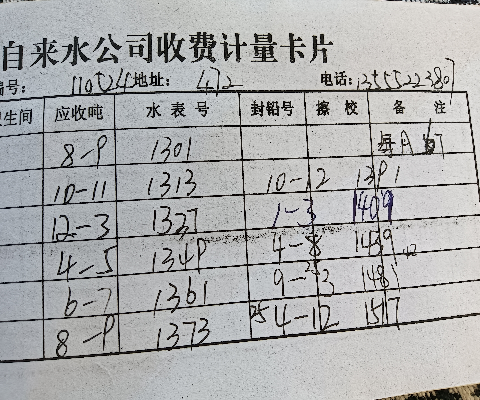 自来水公司收费计量卡片
编号: 110524 地址: 472 电话: 13555223807
卫生间 应收吨 水表号 封铅号 擦校 备注
8-9 1301 每月
10-11 1313 10-12 1391
12-3 1327 1-3 1409
4-5 1349 4-8 1439
6-7 1361 9- 3 148
8-9 1373 25 4-12 1517